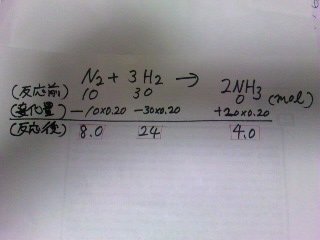 N₂ + 3H₂ → 2NH₃
(反応前) 10 30 0 (mol)
(変化量) -10×0.20 -30×0.20 +20×0.20
(反応後) 8.0 24 4.0